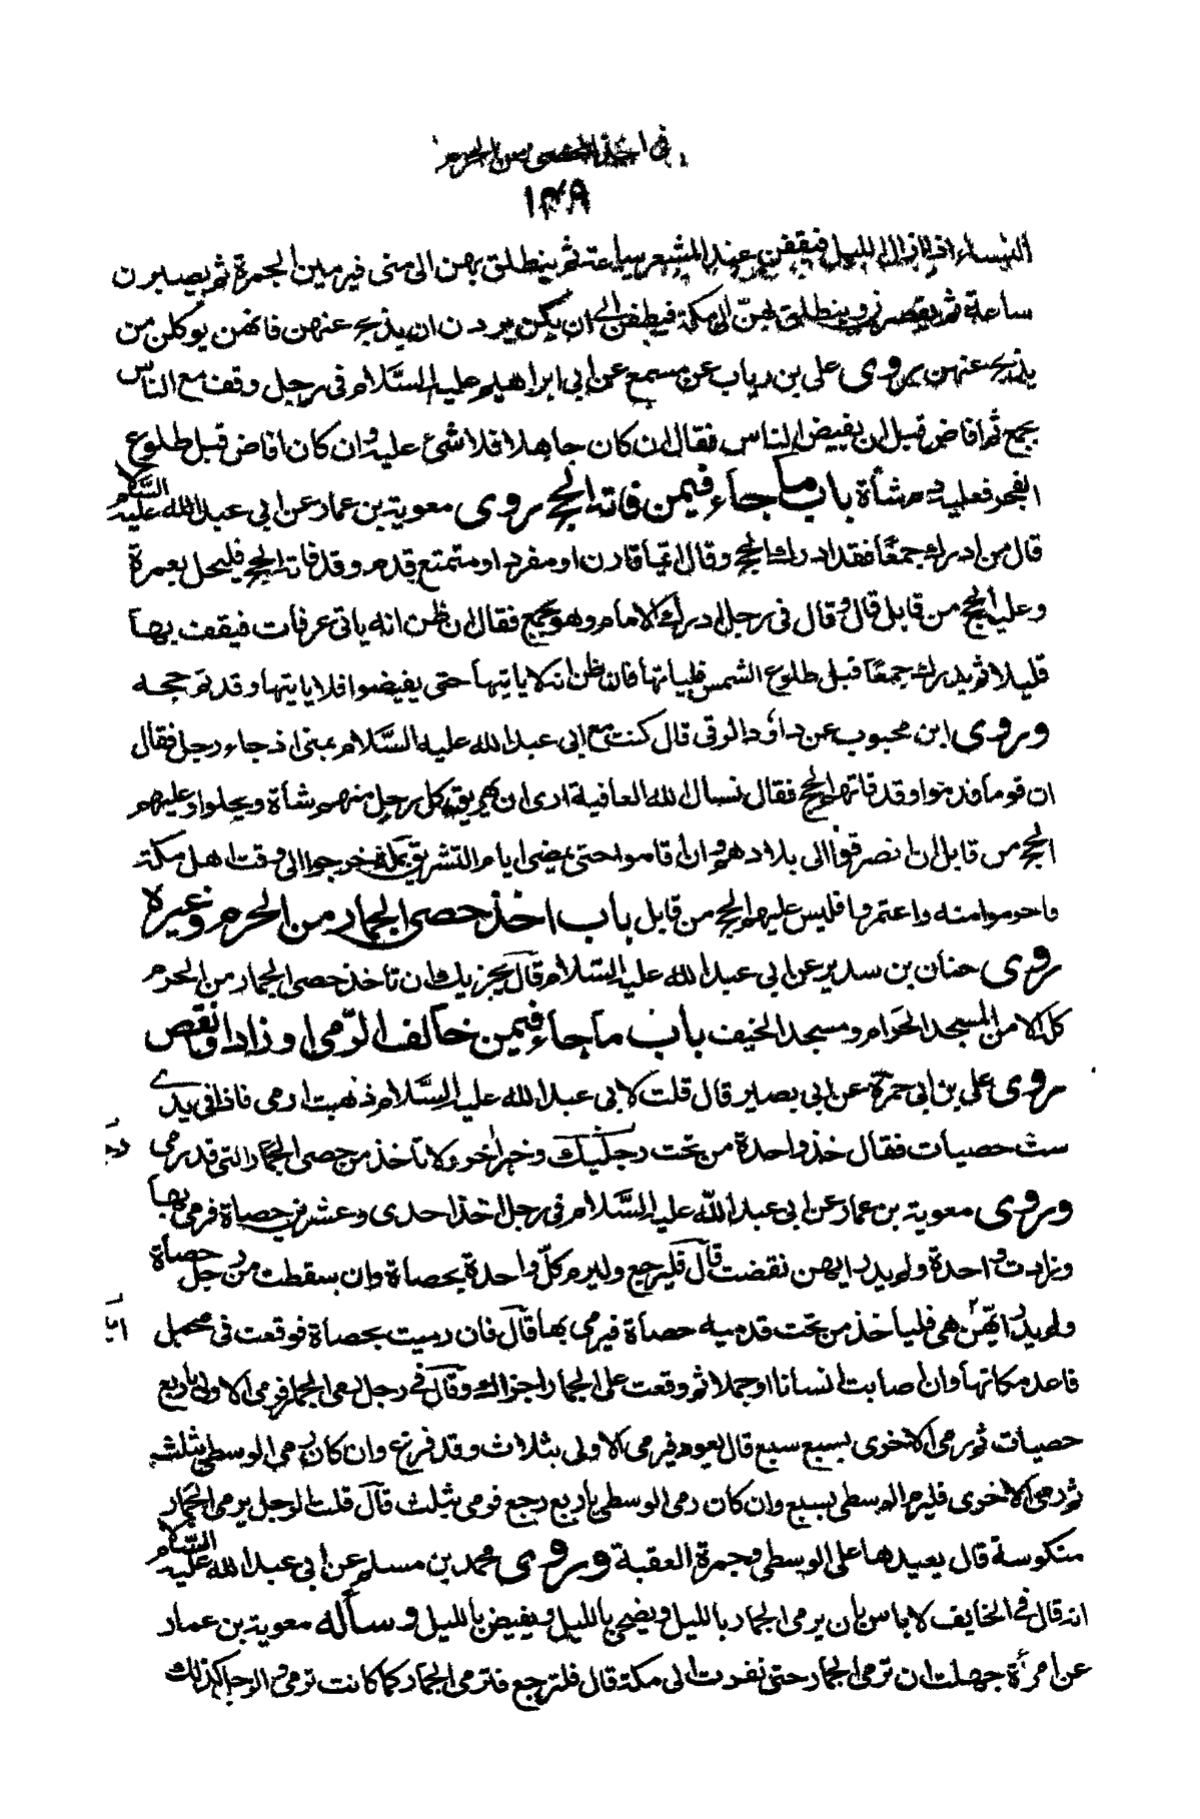 في اخذ الحصى من الحرم
١٣٨
النساء اذا زال الليل فيقفن عند المشعر ساعة ثم ينطلق بهن الى منى فيرمين الجمرة ثم يصبرن
ساعة ثم يقصرن وينطلق بهن الى مكة فيطفن الا ان يكن يردن ان يذبح عنهن فانهن يوكلن من
يذبح عنهن وروى على بن رياب عن مسمع عن ابي ابراهيم عليه السَّلام في رجل وقف مع الناس
بجمع ثم افاض قبل ان يفيض الناس فقال ان كان جاهلا فلا شئ عليه وان كان افاض قبل طلوع
الفجر فعليه دم شأة باب ما جاء فيمن فاته الحج روى معوية بن عمار عن ابي عبد الله عليه السَّلام
قال من ادرك جمعًا فقد ادرك الحج وقال ايّما قارن او مفرد او متمتع قدم وقد فاته الحج فليحل بعمرة
وعليه الحج من قابل قال وقال في رجل ادرك الامام وهو بجمع فقال ان ظن انه ياتى عرفات فيقف بها
قليلا ثم يدرك جمعًا قبل طلوع الشمس فلياتها فان ظن انه لا ياتيها حتى يفيضوا فلا ياتيها وقد تم حجه
وروى ابن محبوب عن داؤد الرقى قال كنت مع ابي عبد الله عليه السَّلام بمنى اذ جاء رجل فقال
ان قوما قدموا وقد فاتهم الحج فقال نسال الله العافية ارى ان يهريق كل رجل منهم شأة ويحلوا وعليهم
الحج من قابل ان انصرفوا الى بلادهم وان اقاموا حتى يمضى ايام التشريق بمكة خرجوا الى وقت اهل مكة
واحرموا منه واعتمروا فليس عليهم الحج من قابل باب اخذ حصى الجمار من الحرم وغيره
روى حنان بن سدير عن ابي عبد الله عليه السّلام قال يجزيك ان تاخذ حصى الجمار من الحرم
كله الا من المسجد الحرام ومسجد الخيف باب ما جاء فيمن خالف الرّمى او زاد او نقص
روى على بن ابي حمزة عن ابي بصير قال قلت لابي عبد الله عليه السَّلام ذهبت ارمى فاذا في يدى
ست حصيات فقال خذ واحدة من تحت رجليك وفي خبر اخر ولا تاخذ من حصى الجمار التى قد رمى
وروى معوية بن عمار عن ابي عبد الله عليه السَّلام في رجل اخذ احدى وعشرين حصاة فرمى بها
وزادت واحدة ولم يدر ايهن نقصت قال فليرجع وليرم كلّ واحدة بحصاة وان سقطت من رجل حصاة
ولم يدر ايّتهن هى فلياخذ من تحت قدميه حصاة فيرمى بها قال فان رميت بحصاة فوقعت في محمل
فاعد مكانها وان اصابت انسانا او جملا ثم وقعت على الجمار اجزاك وقال في رجل رمى الجمار فرمى الاولى باربع
حصيات ثم رمى الاخرى بسبع سبع قال يعود فيرمى الاولى بثلاث وقد فرغ وان كان رمى الوسطى بثلث
ثم رمى الاخرى فليرم الوسطى بسبع وان كان رمى الوسطى باربع رجع فرمى بثلث قال قلت الرجل يرمى الجمار
منكوسة قال يعيدها على الوسطى وجمرة العقبة وروى محمد بن مسلم عن ابي عبد الله عليه السَّلام
انه قال في الخايف لا باس بان يرمى الجمار بالليل ويضحى بالليل ويفيض بالليل وسأله معوية بن عمار
عن امرأة جهلت ان ترمى الجمار حتى نفرت الى مكة قال فلترجع فترمى الجمار كما كانت ترمى والرجل كذلك